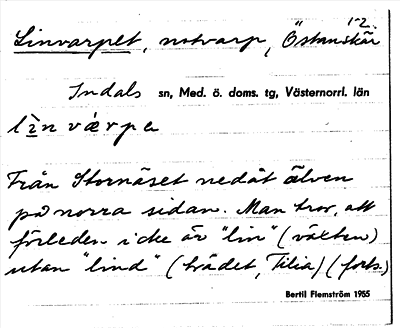 1-2.
Linvarpet, notvarp, Östanskär
Indals sn, Med. ö. doms. tg, Västernorrl. län
lìn várpe
Från Stornäset nedåt älven
på norra sidan. Man tror, att
förleden icke är "lin" (växten)
utan "lind" (trädet, Tilia) (forts.)
Bertil Flemström 1955